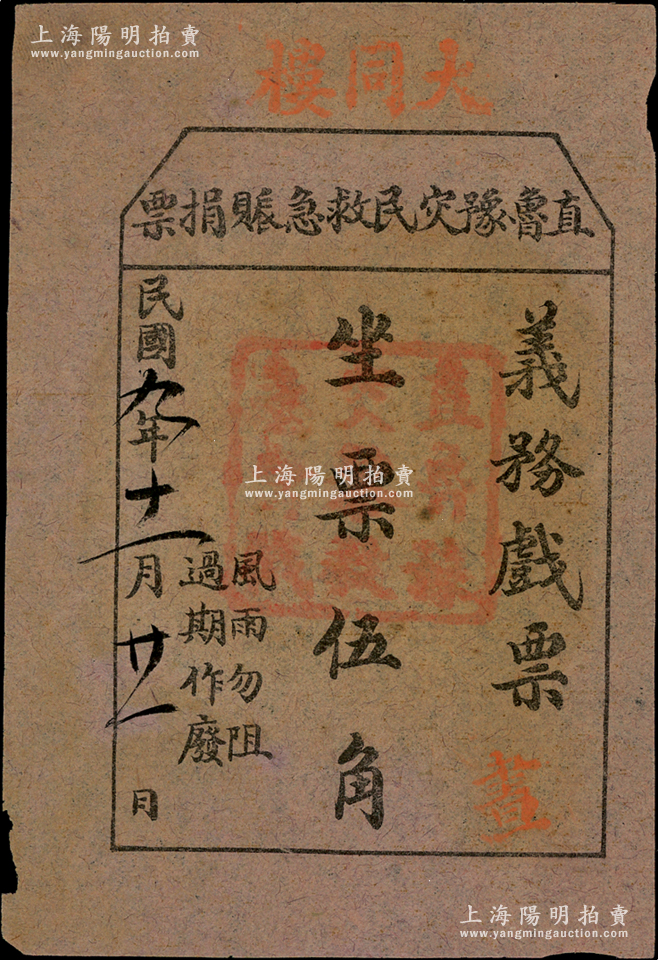 上海陽明拍賣
www.yangmingauction.com
大同樓
直魯豫災民救急賑捐票
義務戲票
晝
坐票伍角
風雨勿阻
過期作廢
民國九年十一月廿一日
上海陽明拍賣
www.yangmingauction.com
上海陽明拍賣
www.yangmingauction.com